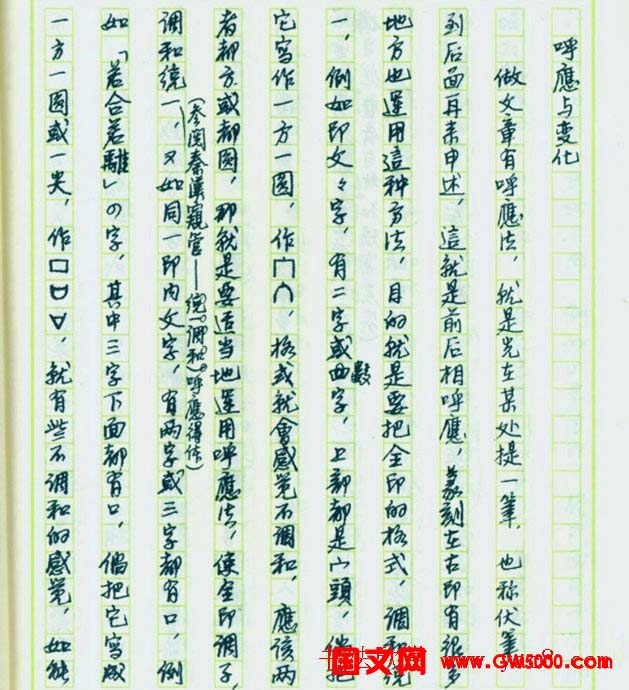 呼應与变化
做文章有呼應法，就是先在某处提一筆，也称伏筆，
到后面再来申述，這就是前后相呼應，篆刻在古印有很多
地方也運用這种方法，目的就是要把全印的格式，調和统
一，例如印文文字，有二字或数字，上部都是宀頭，把
它写作一方一圆，作冂∩，格式就會感觉不調和，應该两
者都方或都圆，那就是要适当地運用呼應法，使全印調子，
(参阅秦漢窺管——统一調和呼應得体)
調和统一，又如同一印内文字，有两字或三字都有口，例
如「若合若離」の字，其中三字下面都有口，倘把它写成
一方一圆或一尖，作口∪▽，就有些不調和的感觉，如能
国文网
www.GW5000.com